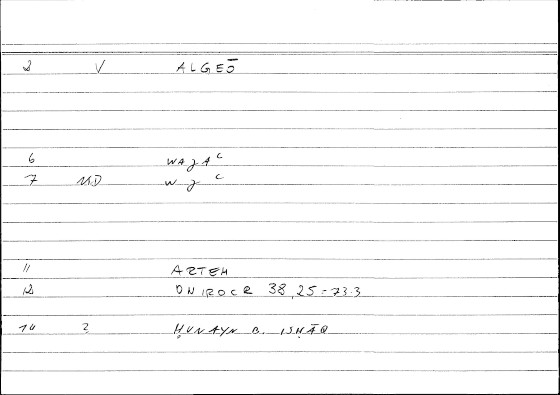 2 V ALGEŌ
6 WAǧAʿ
7 MD W ǧ ʿ
11 ARTEM
12 ONIROCR 38,25 = 73.3
14 2 ḤUNAYN B. ISḤĀQ